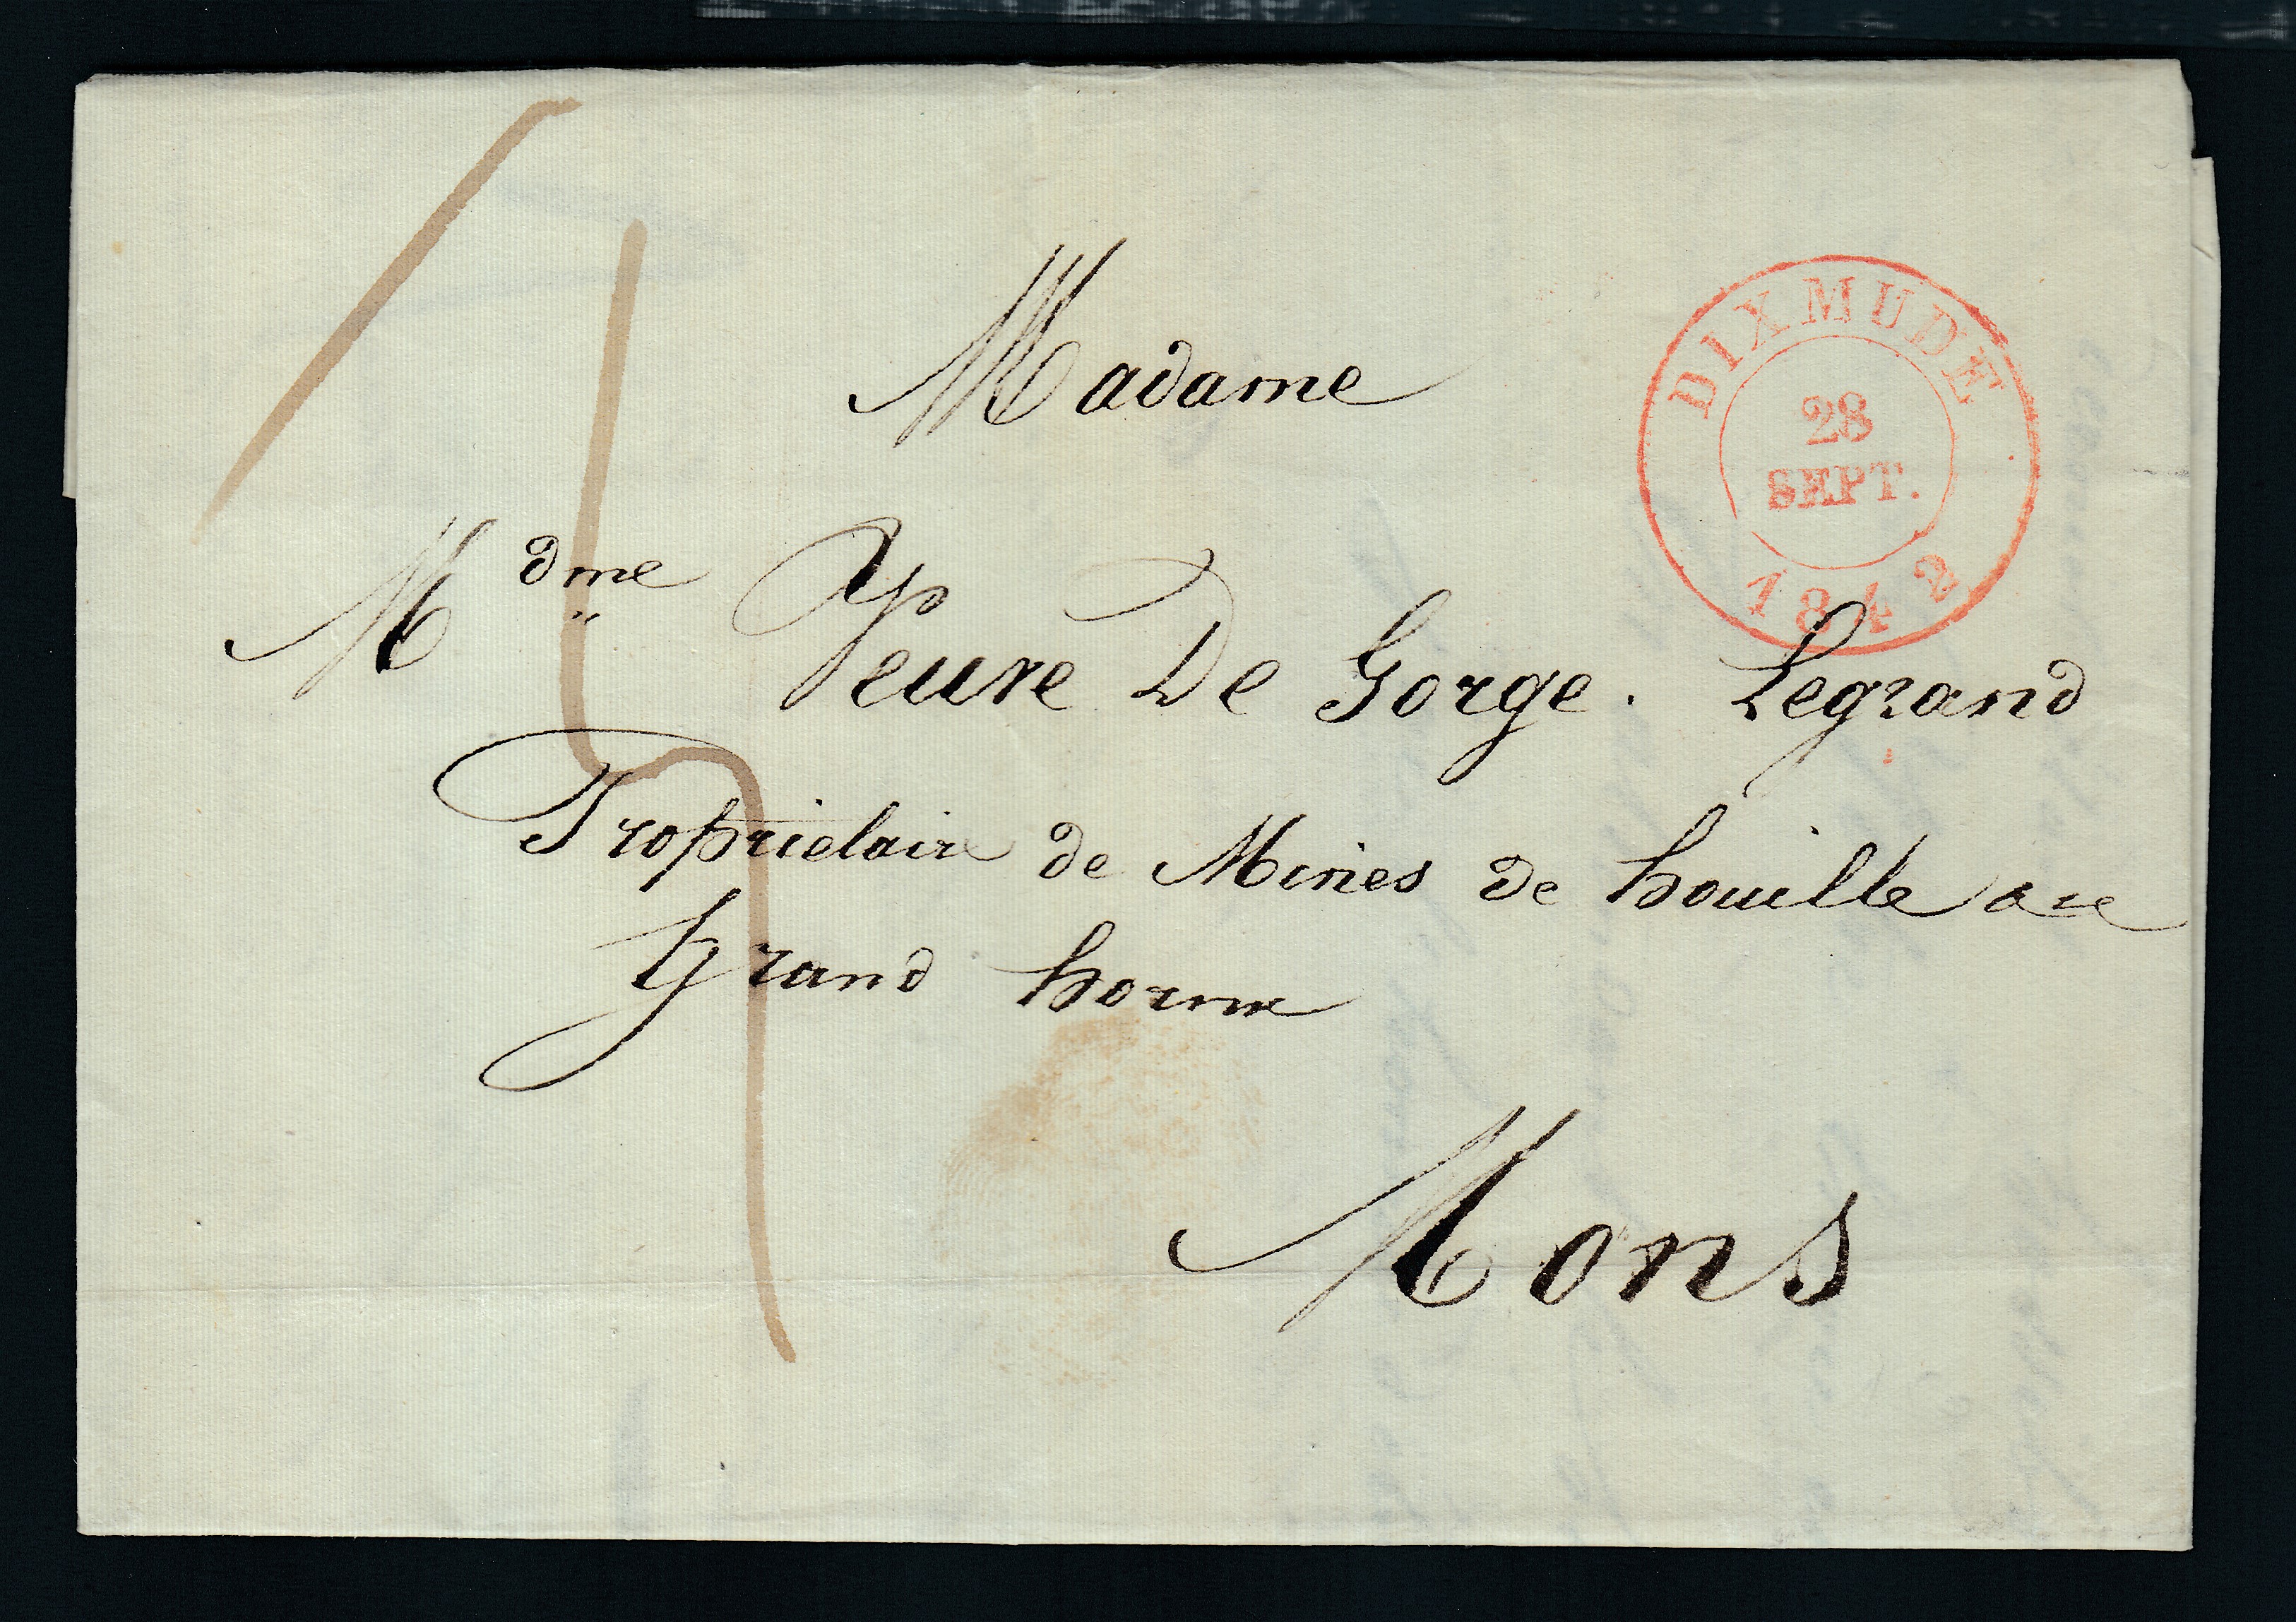 DIXMUDE
28
SEPT.
1842
Madame
Mdme Veuve De Gorge. Legrand
Proprietaire de Mines de houille au
Grand hornu
Mons